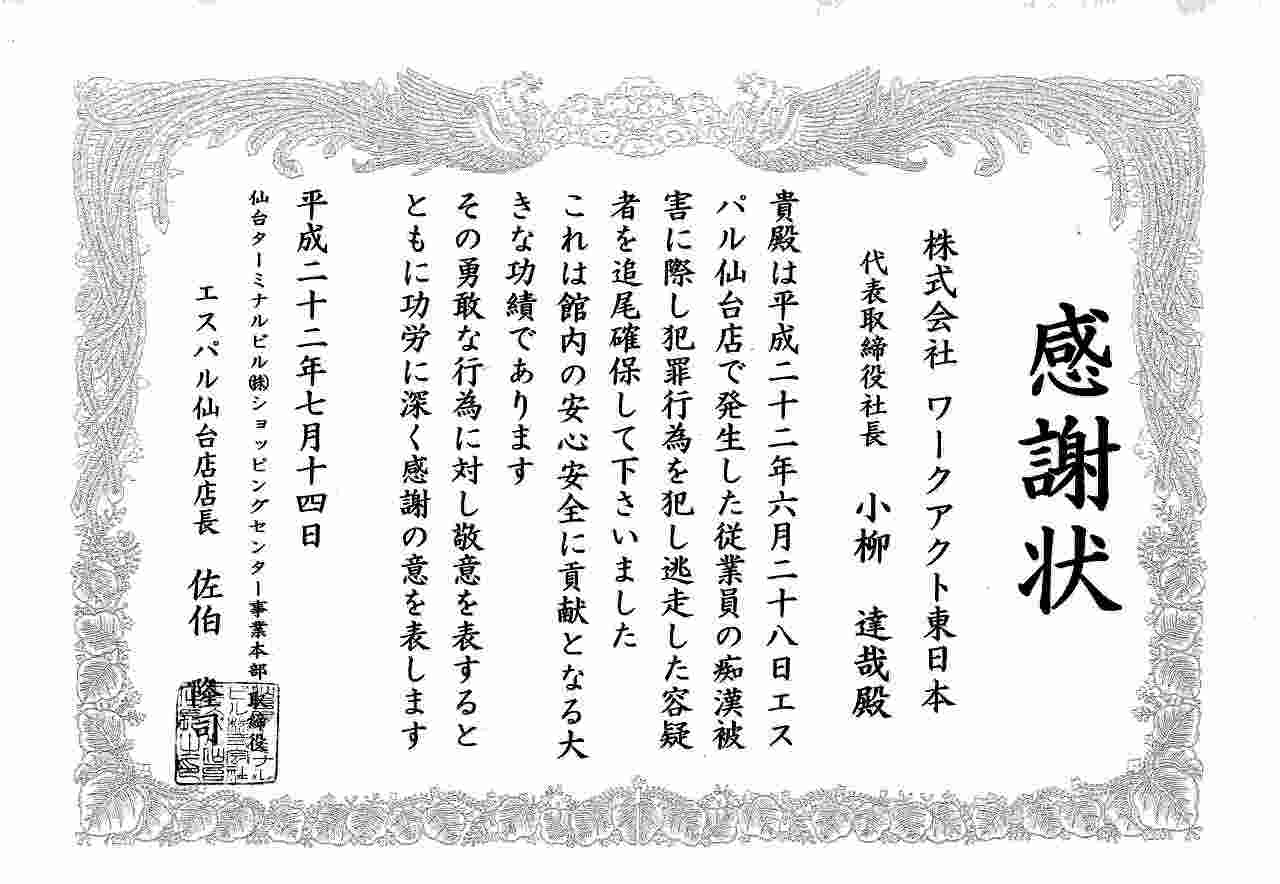 感謝状
株式会社 ワークアクト東日本
代表取締役社長 小柳 達哉殿
貴殿は平成二十二年六月二十八日エス
パル仙台店で発生した従業員の痴漢被
害に際し犯罪行為を犯し逃走した容疑
者を追尾確保して下さいました
これは館内の安心安全に貢献となる大
きな功績であります
その勇敢な行為に対し敬意を表すると
ともに功労に深く感謝の意を表します
平成二十二年七月十四日
仙台ターミナルビル㈱ショッピングセンター事業本部 取締役
エスパル仙台店店長 佐伯 隆司